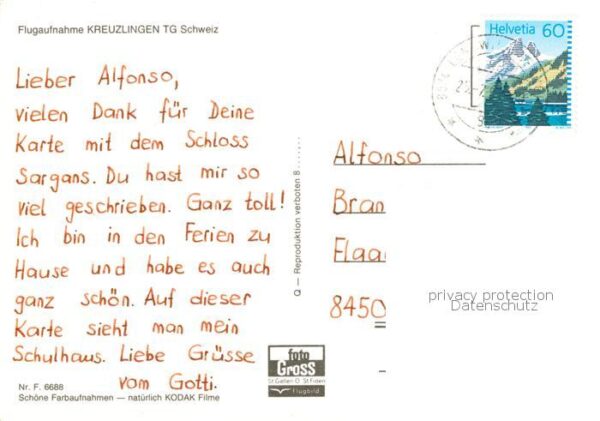 Flugaufnahme KREUZLINGEN TG Schweiz
Lieber Alfonso,
vielen Dank für Deine
Karte mit dem Schloss
Sargans. Du hast mir so
viel geschrieben. Ganz toll!
Ich bin in den Ferien zu
Hause und habe es auch
ganz schön. Auf dieser
Karte sieht man mein
Schulhaus. Liebe Grüsse
vom Gotti.
Nr. F. 6688
Schöne Farbaufnahmen — natürlich KODAK Filme
Q — Reproduktion verboten 8
foto
Gross
St Gallen O St Fiden
Flugbild
Helvetia 60
Alfonso
Bran
Flaa
8450
privacy protection
Datenschutz